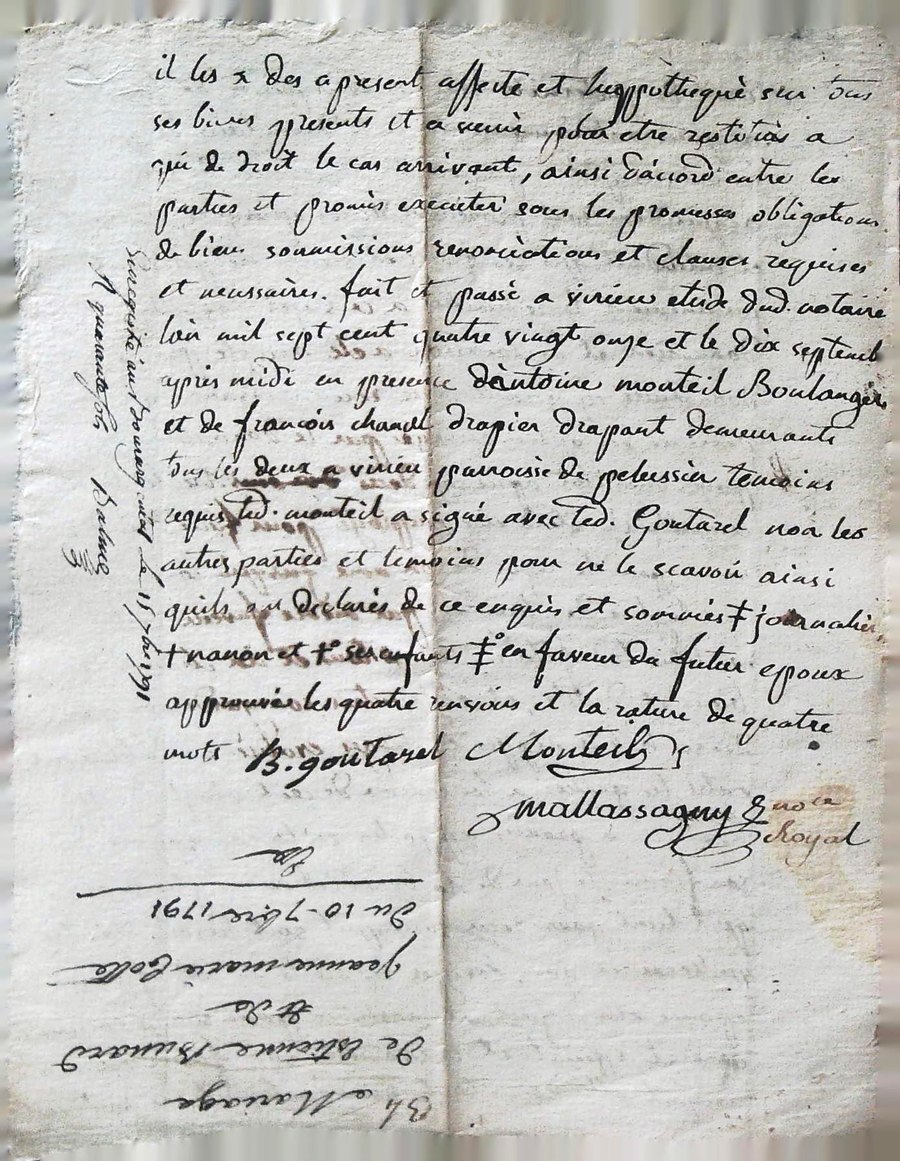 il les x des a present affecte et hyppothequè sur tous
ses biens presents et a venir pour etre restitués a
qui de droit le cas arrivant, ainsi d'accord entre les
parties et promis executer sous les promesses obligations
de biens soumissions renonciations et clauses requises
et necessaires. fait et passé a virieu etude dud. notaire
l'an mil sept cent quatre vingt onze et le dix septemb
après midi en presence d'antoine monteil Boulanger
et de francois chancel drapier drapant demeurants
tous les deux a virieu parroisse de pelussin temoins
requis led. monteil a signé avec led. Goutarel non les
autres parties et temoins pour ne le scavoir ainsi
quils ont declarés de ce enquis et sommés ‡ journalier
+ nanon et +° ses enfants ‡° en faveur du futur epoux
approuvés les quatre renvois et la rature de quatre
mots B. goutarel Monteil
mallassagny no.re
Royal
Enregistré au Bourg le 15 7bre 1791
R quarante sols
34 Mariage
De Estienne Brunard
et de
Jeanne marie Colle
du 10 7bre 1791